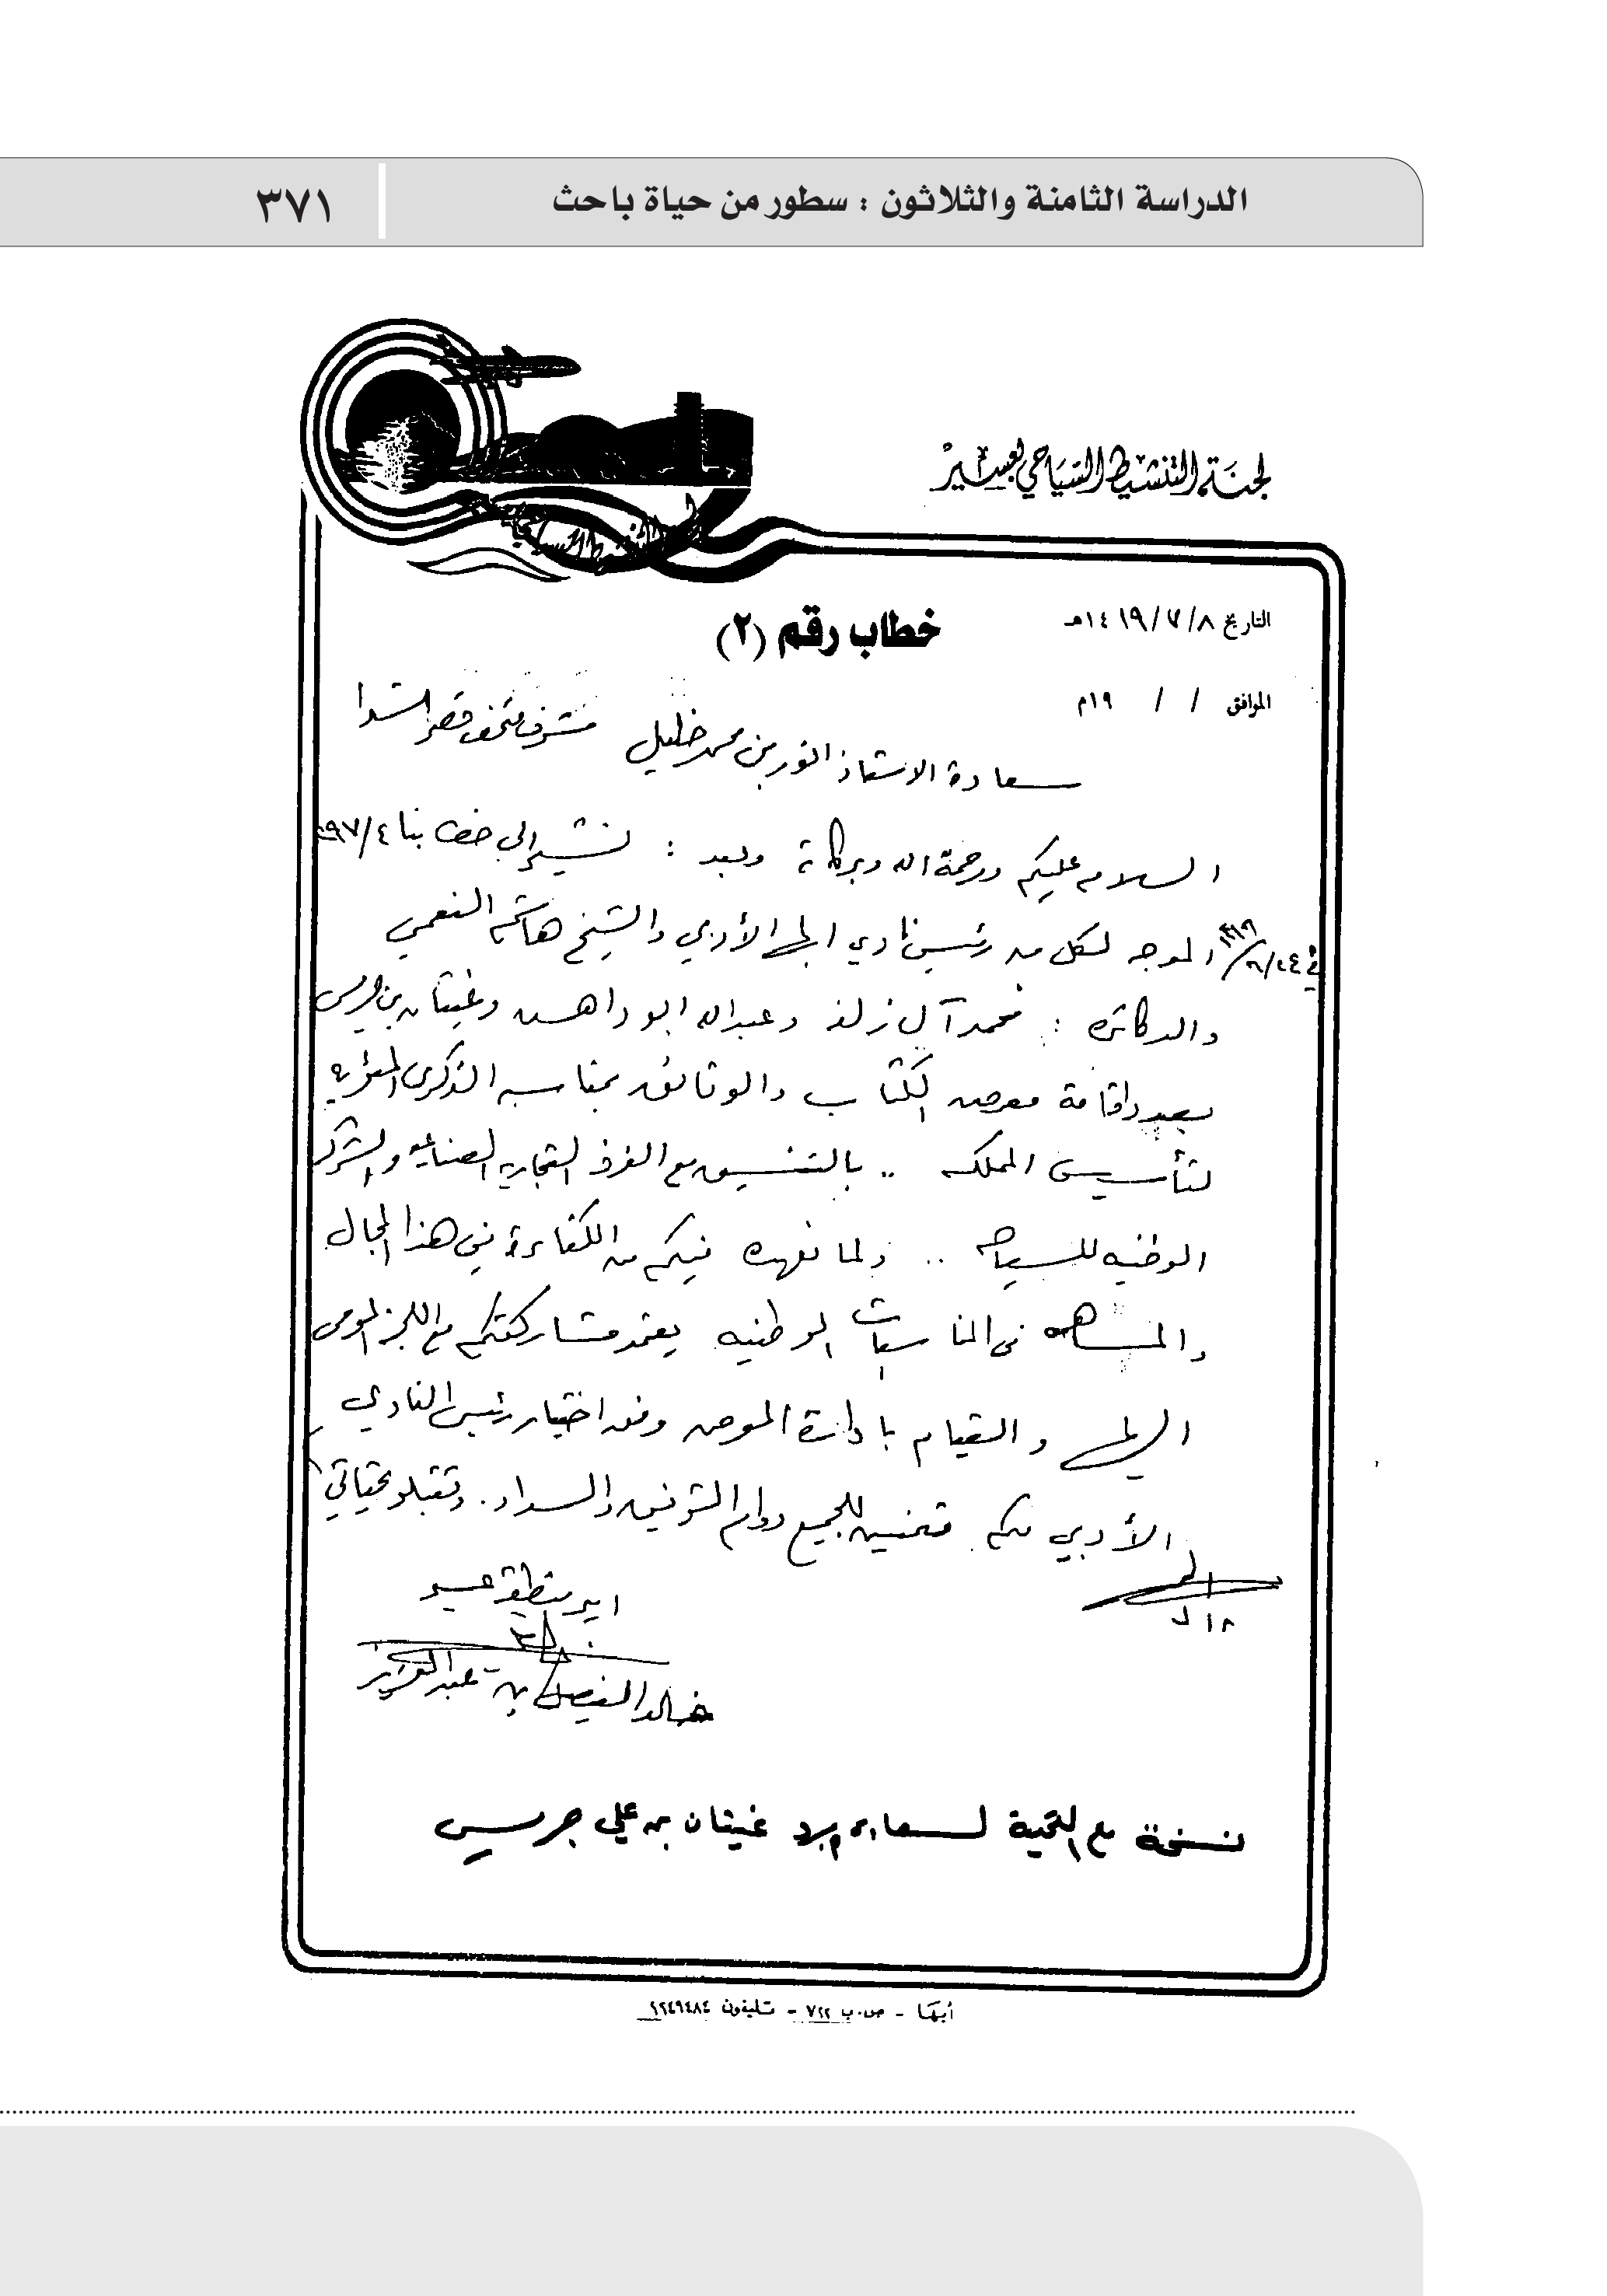 الدراسة الثامنة والثلاثون : سطور من حياة باحث
٣٧١
لجنة التنشيط السياحي بعسير
التاريخ ٨ / ٧ / ١٤١٩هـ
خطاب رقم (٢)
الموافق / / ١٩م
سعادة الاستاذ انور بن محمد خليل مشرف متحف قصر شدا
السلام عليكم ورحمة الله وبركاته وبعد : نشير إلى خطابنا
الموجه لكل من رئيس نادي ابها الأدبي والشيخ هاشم النعمي
والدكاتره : محمد آل زلفه وعبدالله ابو داهش وغيثان بن جريس
بصدد إقامة معرض الكتاب والوثائق بمناسبه الذكرى المئويه
لتأسيس المملكه .. بالتنسيق مع الغرفه التجاريه الصناعيه والشركه
الوطنيه للسياحه .. ولما نعهده فيكم من الكفاءة في هذا المجال
والمساهمه في المناسبات الوطنيه يعتمد مشاركتكم مع اللجنه المومى
اليها والقيام بادارة المعرض وفق اختيار رئيس النادي
الأدبي لكم متمنين للجميع دوام التوفيق والسداد . وتقبلو تحياتي
امير منطقة عسير
خالد الفيصل بن عبدالعزيز
نسخة مع التحية لسعادة د غيثان بن علي جريس
أبها - ص.ب ٧٢٢ - تليفون ٢٢٤٩٤٨٤